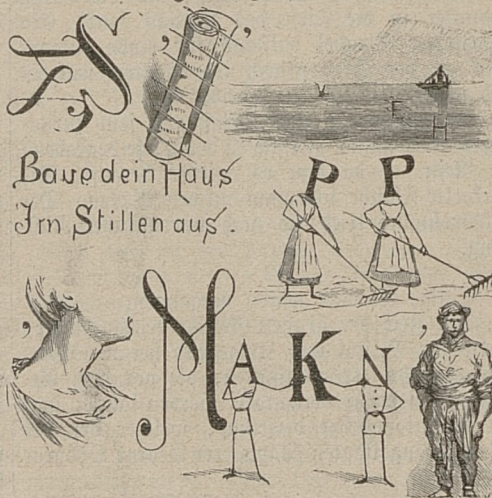 S , ’ ’
E
H
Baue dein Haus
Im Stillen aus.
P P
’ M A K N ’